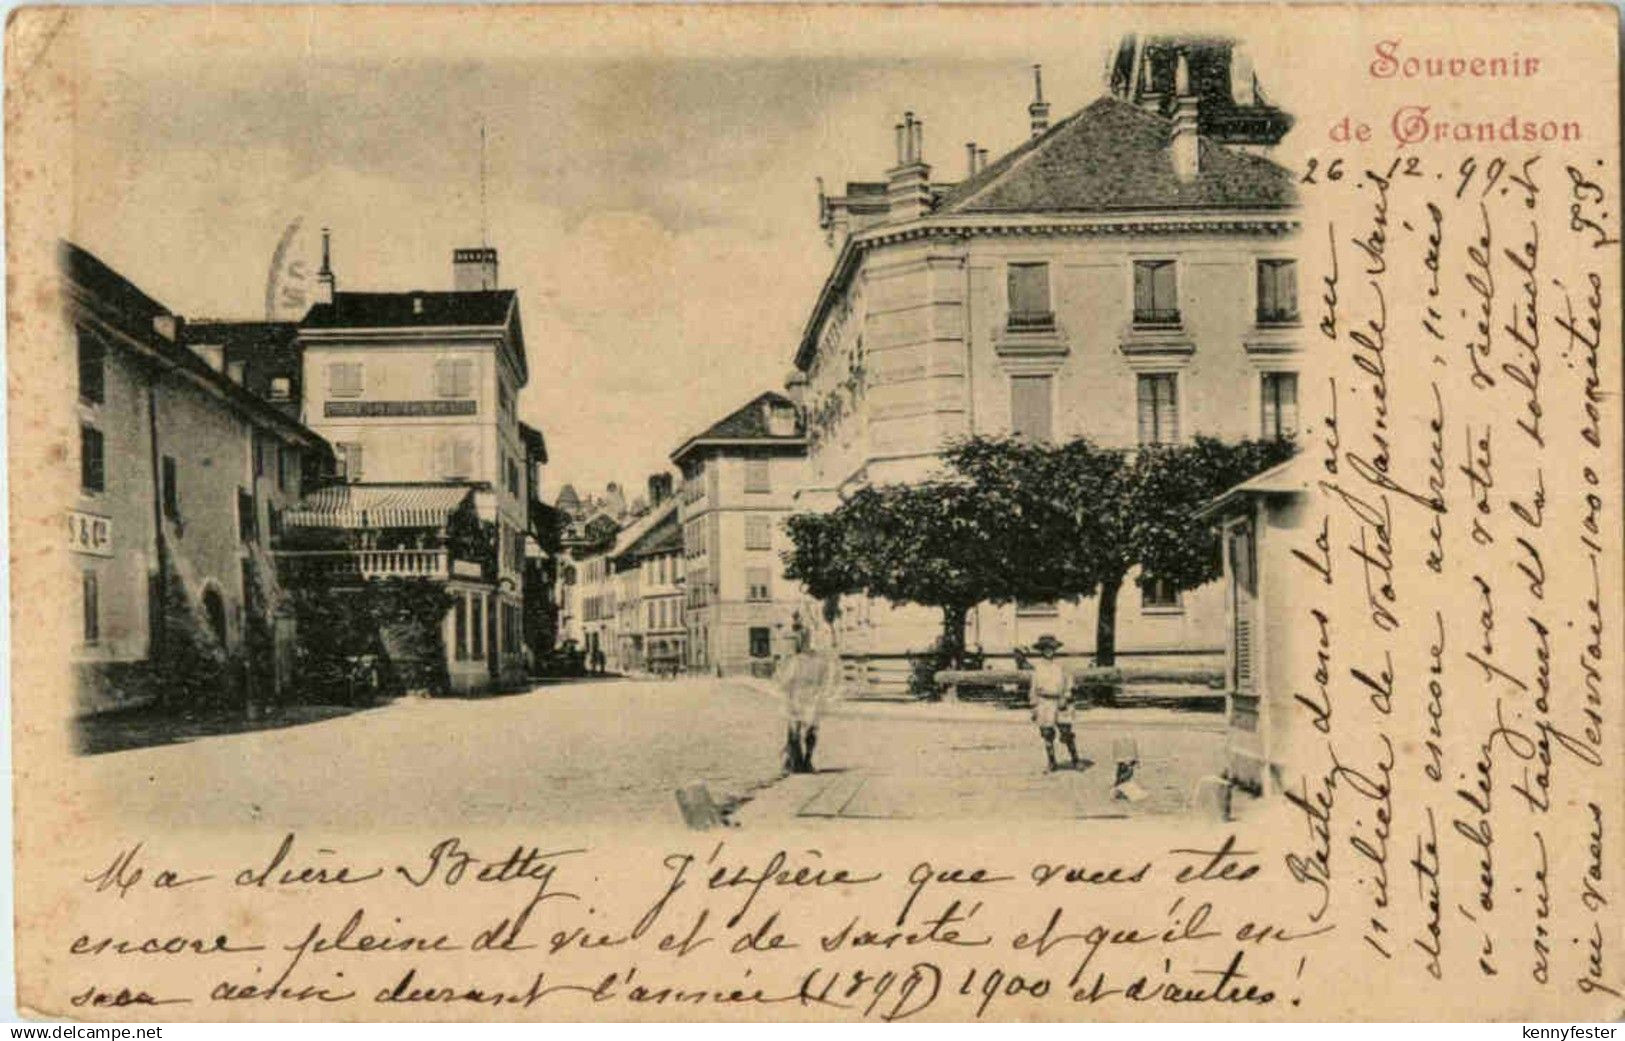 Souvenir
de Grandson
26.12.99
S & Cie
Ma chère Betty. J'espère que vous êtes
encore pleine de vie et de santé et qu'il en
sera ainsi durant l'année (1899) 1900 et d'autres!
Restez dans la joie au
milieu de votre famille sans
doute encore augmentée, mais
n'oubliez pas votre vieille
amie toujours de la solitude et
que vous envoie 1000 amitiés J.S.
kennyfester